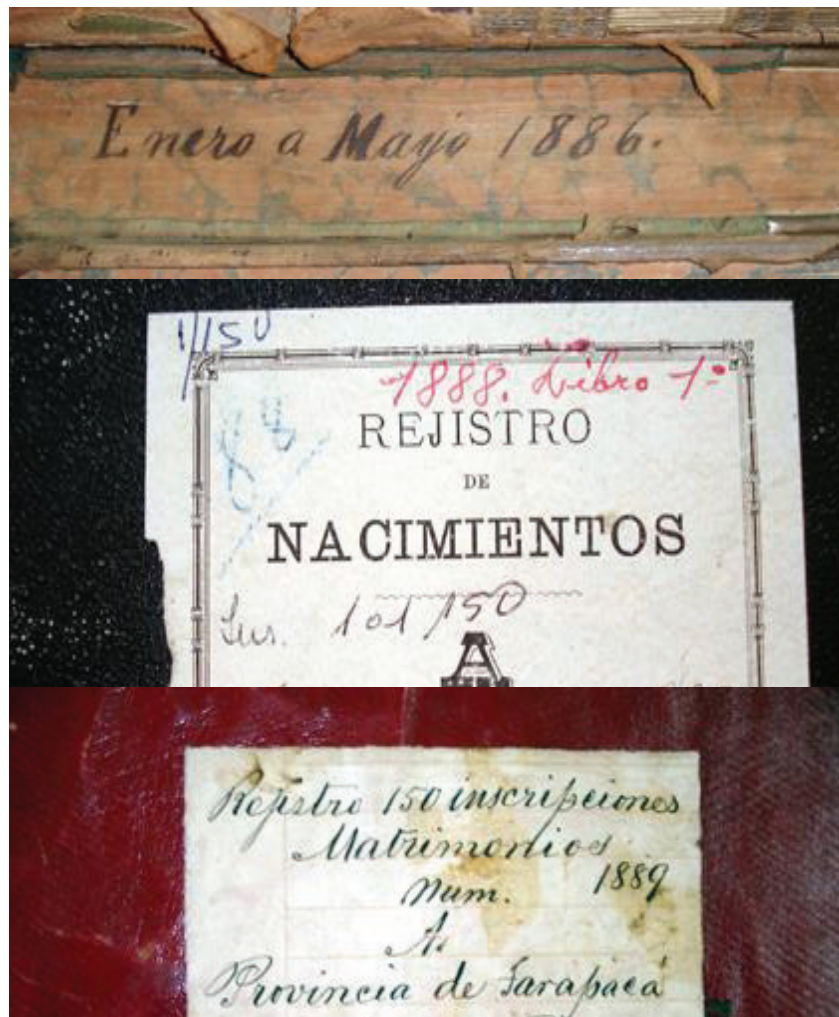 Enero a Mayo 1886.
1/150
1888. Libro 1º
88
REJISTRO
DE
NACIMIENTOS
101/150
A
Rejistro 150 inscripciones
Matrimonios
Num. 1889
A
Provincia de Tarapacá